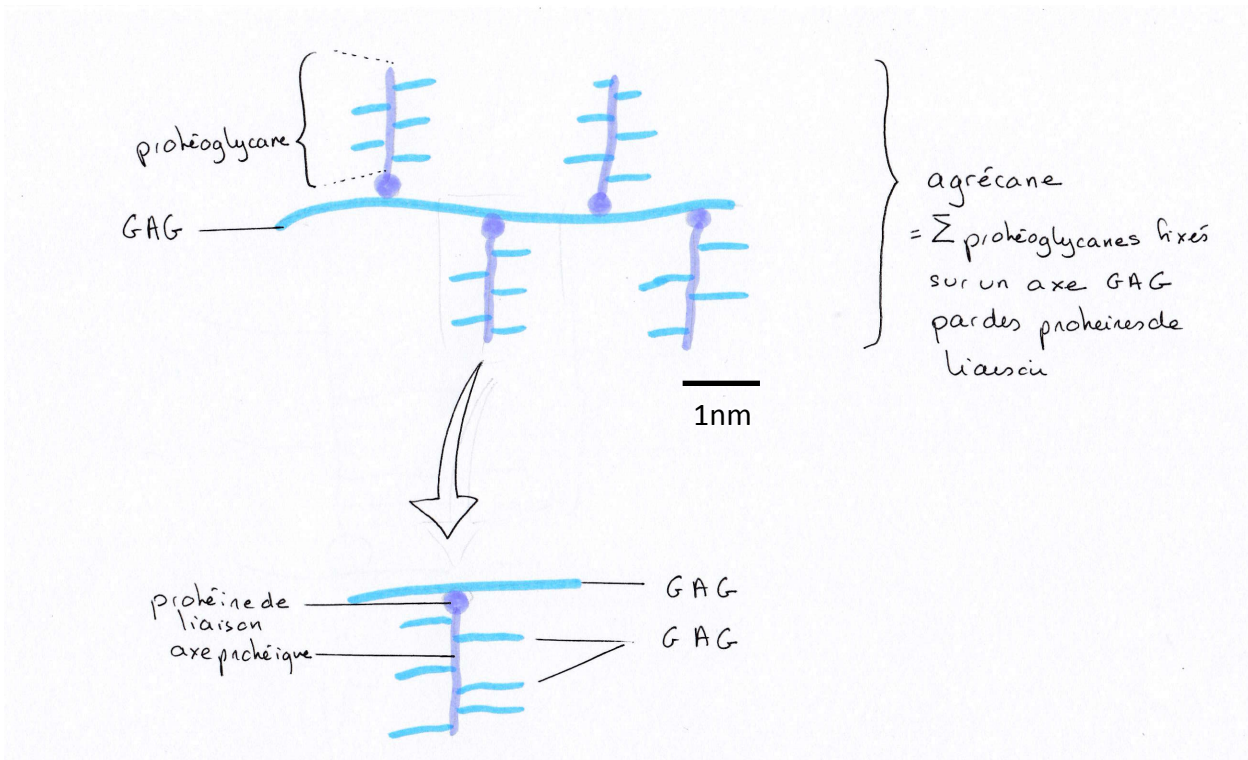 protéoglycane
GAG
agrécane
= Σ protéoglycanes fixés
sur un axe GAG
par des protéines de
liaison
1nm
GAG
protéine de
liaison
GAG
axe protéique